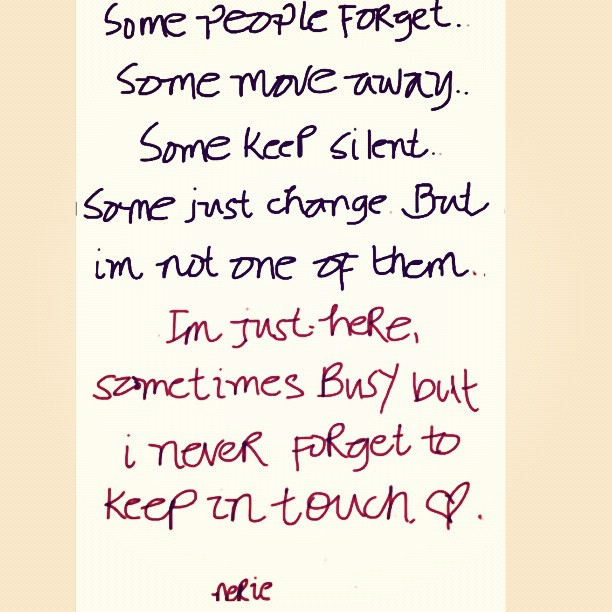 Some people forget..
Some move away..
Some keep silent..
Some just change. But
im not one of them..
Im just here,
sometimes Busy but
i never forget to
keep in touch ♡.
nerie